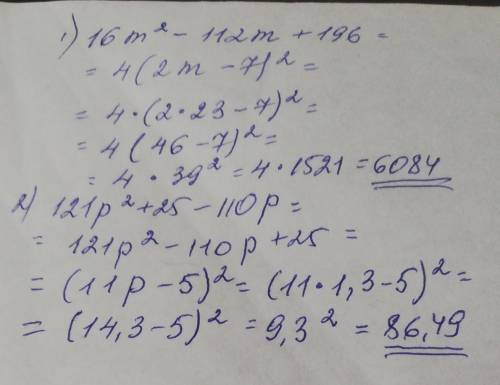 1) 16m² - 112m + 196 =
= 4(2m - 7)² =
= 4·(2·23 - 7)² =
= 4(46 - 7)² =
= 4 · 39² = 4 · 1521 = 6084
2) 121p² + 25 - 110p =
= 121p² - 110p + 25 =
= (11p - 5)² = (11·1,3 - 5)² =
= (14,3 - 5)² = 9,3² = 86,49